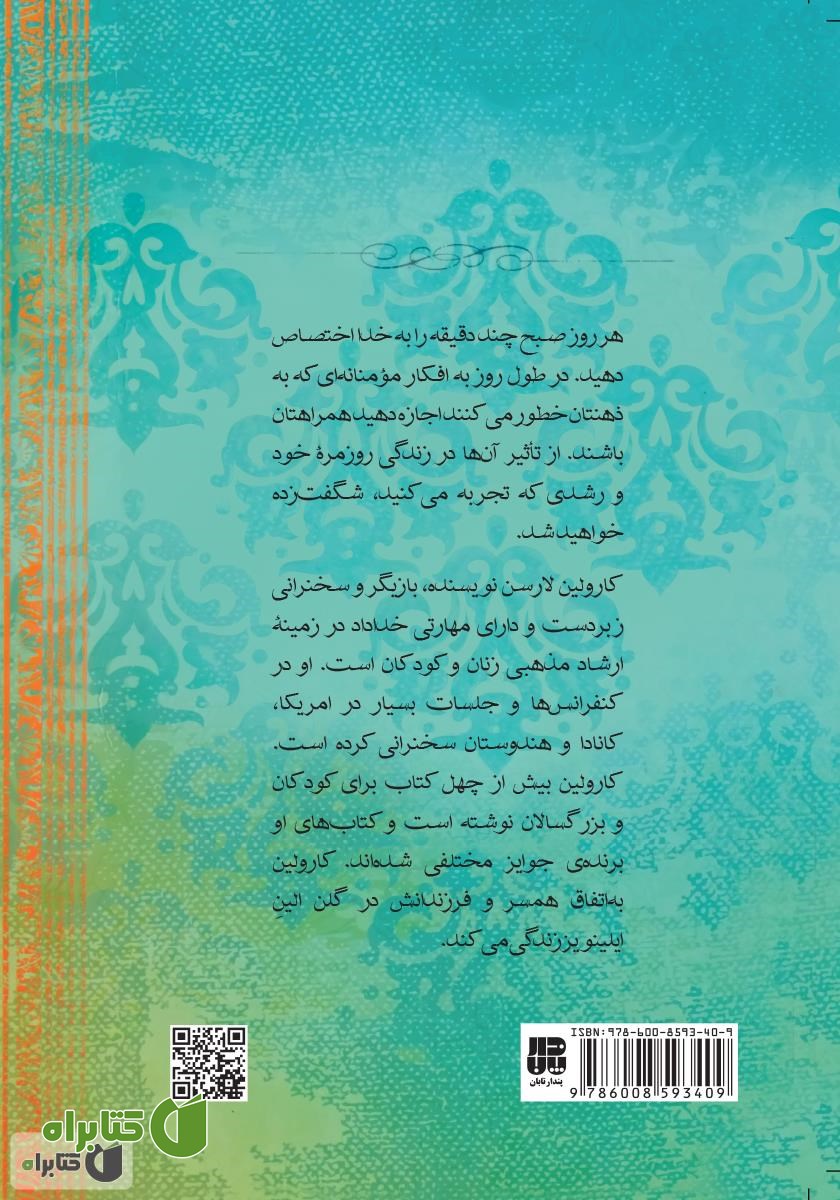 هر روز صبح چند دقیقه را به خدا اختصاص
دهید. در طول روز به افکار مؤمنانه‌ای که به
ذهنتان خطور می‌کنند اجازه دهید همراهتان
باشند. از تأثیر آن‌ها در زندگی روزمرهٔ خود
و رشدی که تجربه می‌کنید، شگفت‌زده
خواهید شد.
کارولین لارسن نویسنده، بازیگر و سخنرانی
زبردست و دارای مهارتی خداداد در زمینهٔ
ارشاد مذهبی زنان و کودکان است. او در
کنفرانس‌ها و جلسات بسیار در امریکا،
کانادا و هندوستان سخنرانی کرده است.
کارولین بیش از چهل کتاب برای کودکان
و بزرگسالان نوشته است و کتاب‌های او
برنده‌ی جوایز مختلفی شده‌اند. کارولین
به‌اتفاق همسر و فرزندانش در گلن الینِ
ایلینویز زندگی می‌کند.
ISBN: 978-600-8593-40-9
پندار تابان
9 786008 593409
کتابراه
کتابراه